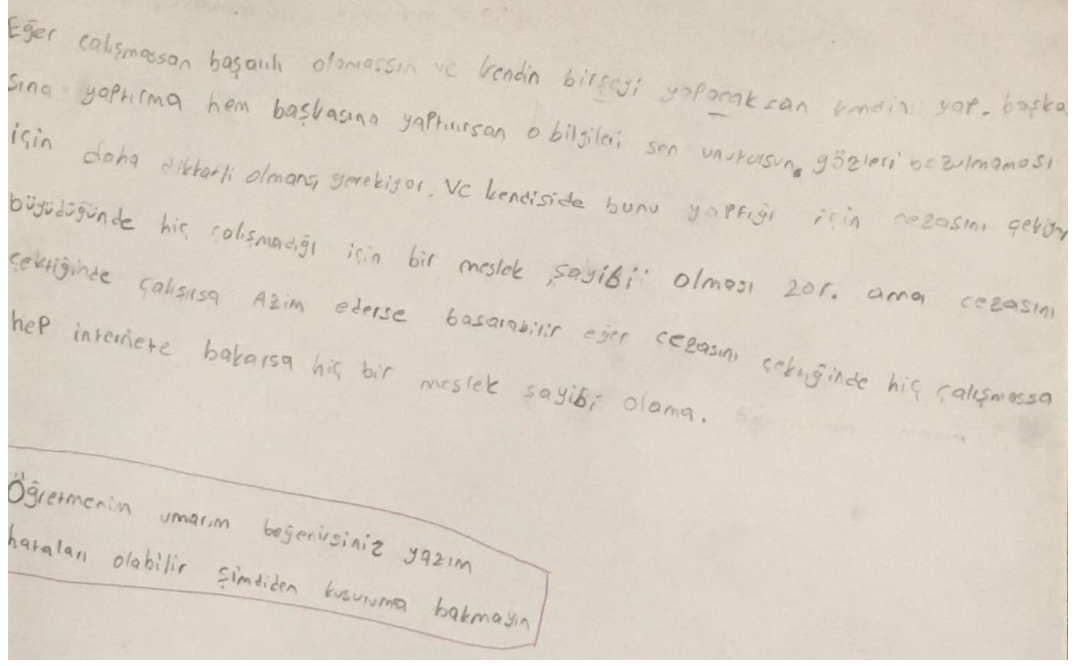 Eğer çalışmassan başarılı olamassın ve kendin birşeyi yapacaksan kendin yap. başka
sına yaptırma hem başkasına yaptırırsan o bilgileri sen unutursun. gözleri bozulmaması
için daha dikkatli olmansı gerekiyor. Ve kendiside bunu yaptığı için cezasını çekiyor
büyüdüğünde hiç çalışmadığı için bir meslek sayibi olması zor. ama cezasını
çektiğinde çalışırsa Azim ederse başarabilir eğer cezasını çektiğinde hiç çalışmassa
hep internete bakarsa hiç bir meslek sayibi olama.
Öğretmenim umarım beğenirsiniz yazım
hataları olabilir şimdiden kusuruma bakmayın